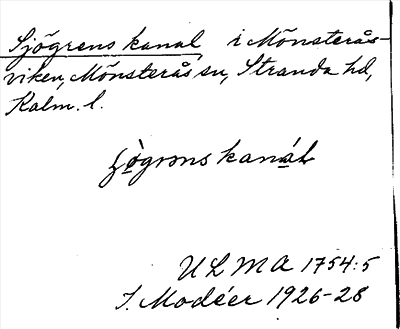 Sjögrens kanal i Mönsterås-
viken, Mönsterås sn, Stranda hd,
Kalm. l.
ULMA 1754:5
I. Modéer 1926-28